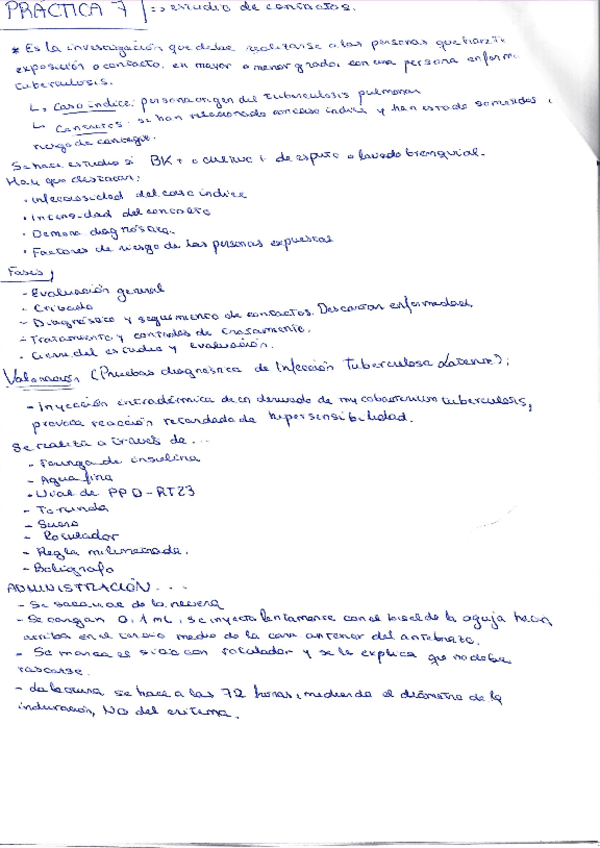 PRACTICA 7 => estudio de contactos.
* Es la investigación que debe realizarse a las personas que han tenido
exposición o contacto, en mayor o menor grado, con una persona enferma
tuberculosis.
↳ Caso índice: persona origen del tuberculosis pulmonar
↳ Contactos: se han relacionado con caso índice y han estado sometidos a
riesgo de contagio.
Se hace estudio si BK+ o cultivo + de esputo o lavado bronquial.
Hay que destacar:
· infecciosidad del caso índice
· Intensidad del contacto
· Demora diagnóstica.
· Factores de riesgo de las personas expuestas
Fases
- Evaluación general
- Cribado
- Diagnóstico y seguimiento de contactos. Descartar enfermedad.
- Tratamiento y controles de tratamiento.
- Cierre del estudio y evaluación.
Valoración (Pruebas diagnóstica de Infección Tuberculosa Latente):
- inyección intradérmica de un derivado de mycobacterium tuberculosis,
provoca reacción retardada de hipersensibilidad.
Se realiza a través de...
- Jeringa de insulina
- Aguja fina
- Vial de PPD-RT23
- Torunda
- Suero
- Rotulador
- Regla milimetrada.
- Bolígrafo
ADMINISTRACIÓN...
- Se saca vial de la nevera
- Se cargan 0,1 mL, se inyecta lentamente con el bisel de la aguja hacia
arriba en el tercio medio de la cara anterior del antebrazo.
- Se marca el sitio con rotulador y se le explica que no debe
rascarse.
- La lectura se hace a las 72 horas, midiendo el diámetro de la
induración, NO del eritema.